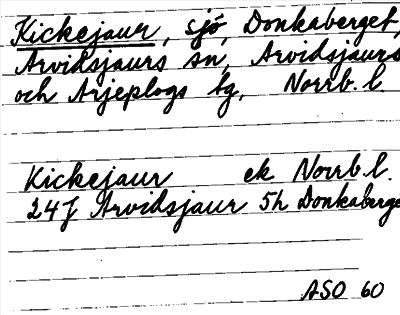 Kickejaur, sjö, Donkaberget,
Arvidsjaurs sn, Arvidsjaurs
och Arjeplogs tg, Norrb. l.
Kickejaur ek Norrb l.
24 J Arvidsjaur 5h Donkaberge
ASO 60